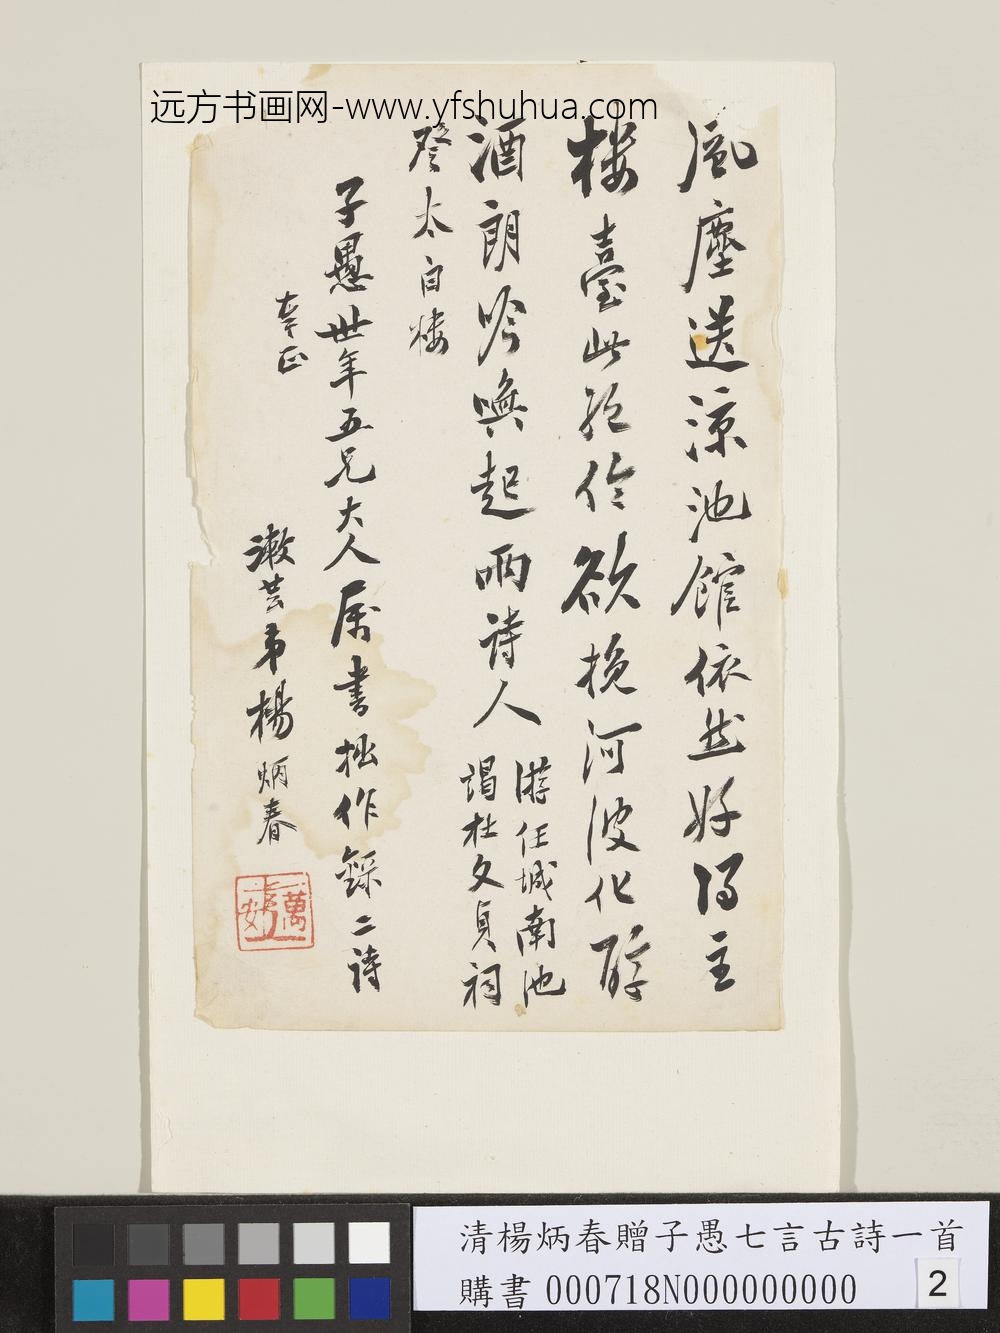 远方书画网-www.yfshuhua.com
風塵送涼池館依然好得主
樓臺此經伶欲挽河波化醇
酒朗吟喚起兩詩人
游任城南池
謁杜文貞祠
登太白樓
子愚世年五兄大人屬書拙作錄二詩
奉正
漱芸弟楊炳春
清楊炳春贈子愚七言古詩一首
購書 000718N000000000
2